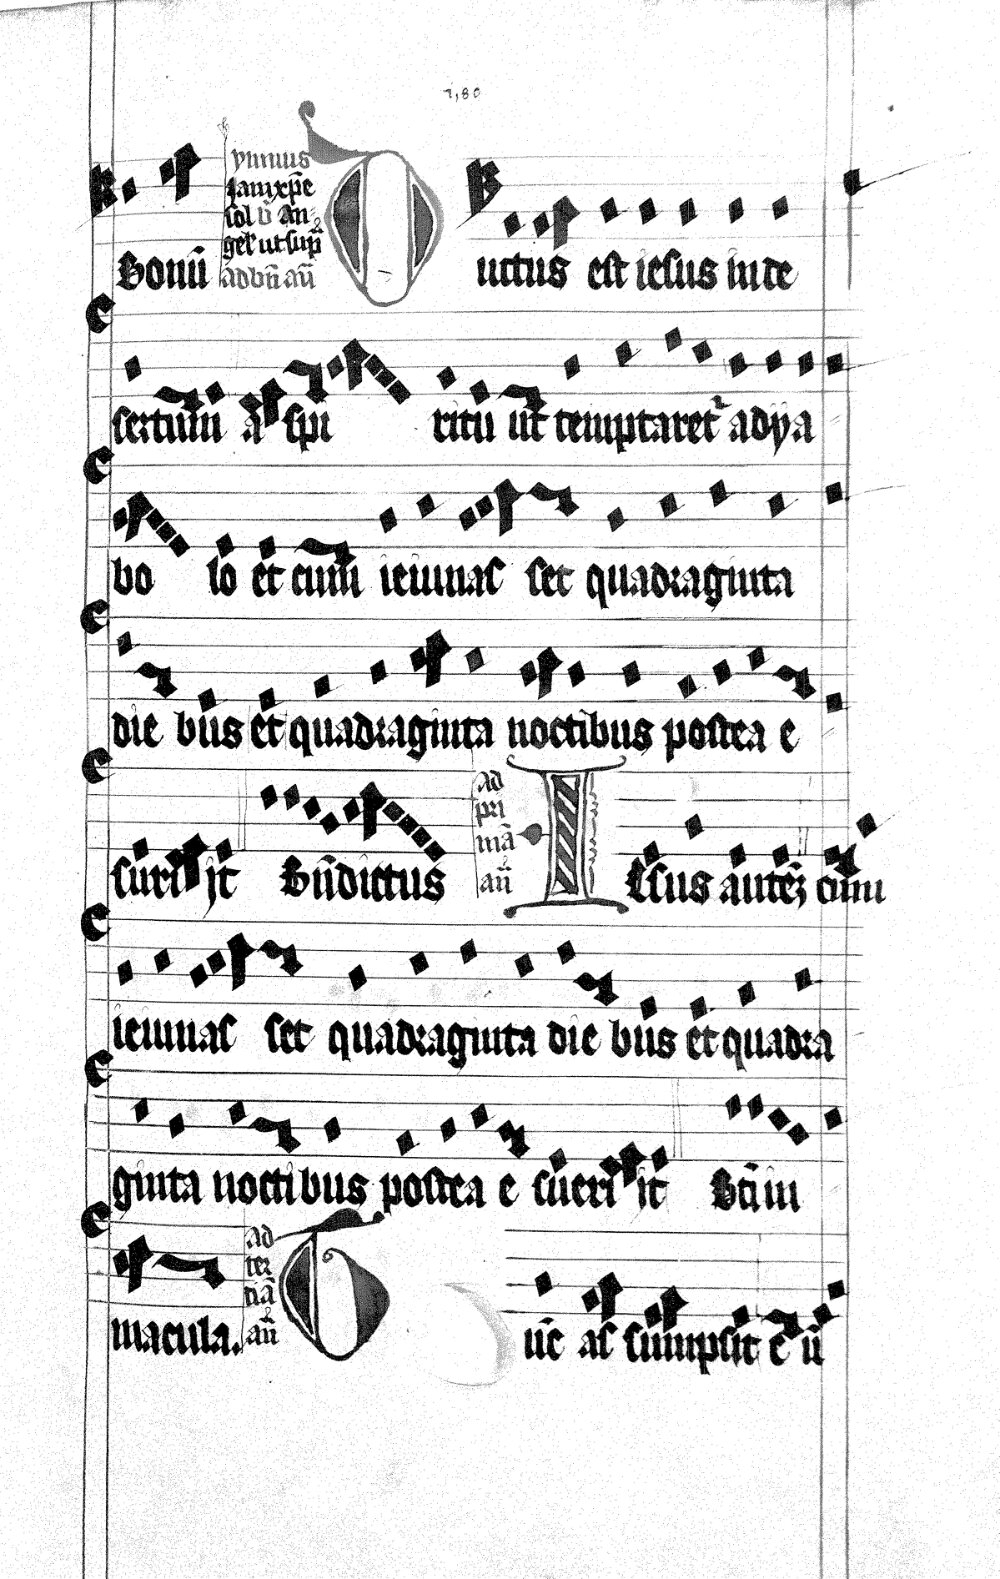 1,80
ymnus
Iamxp̄e
sol ƀ an
gel᷒ ut sup̄
ad bn̄ an̄
Bonū Ductus est iesus in de
sertum a spi ritu ut temptaretr̄ a dya
bo lo et cum ieiunas set quadraginta
die bus et quadraginta noctibus postea e
suri it Bn̄dictus
ad
pri
mā
an̄
Iesus autē cum
ieiunas set quadraginta die bus et quadra
ginta noctibus postea e sueri it Bn̄ in
macula.
ad
ter
ciā
an̄
Tūc as sumpsit e ū